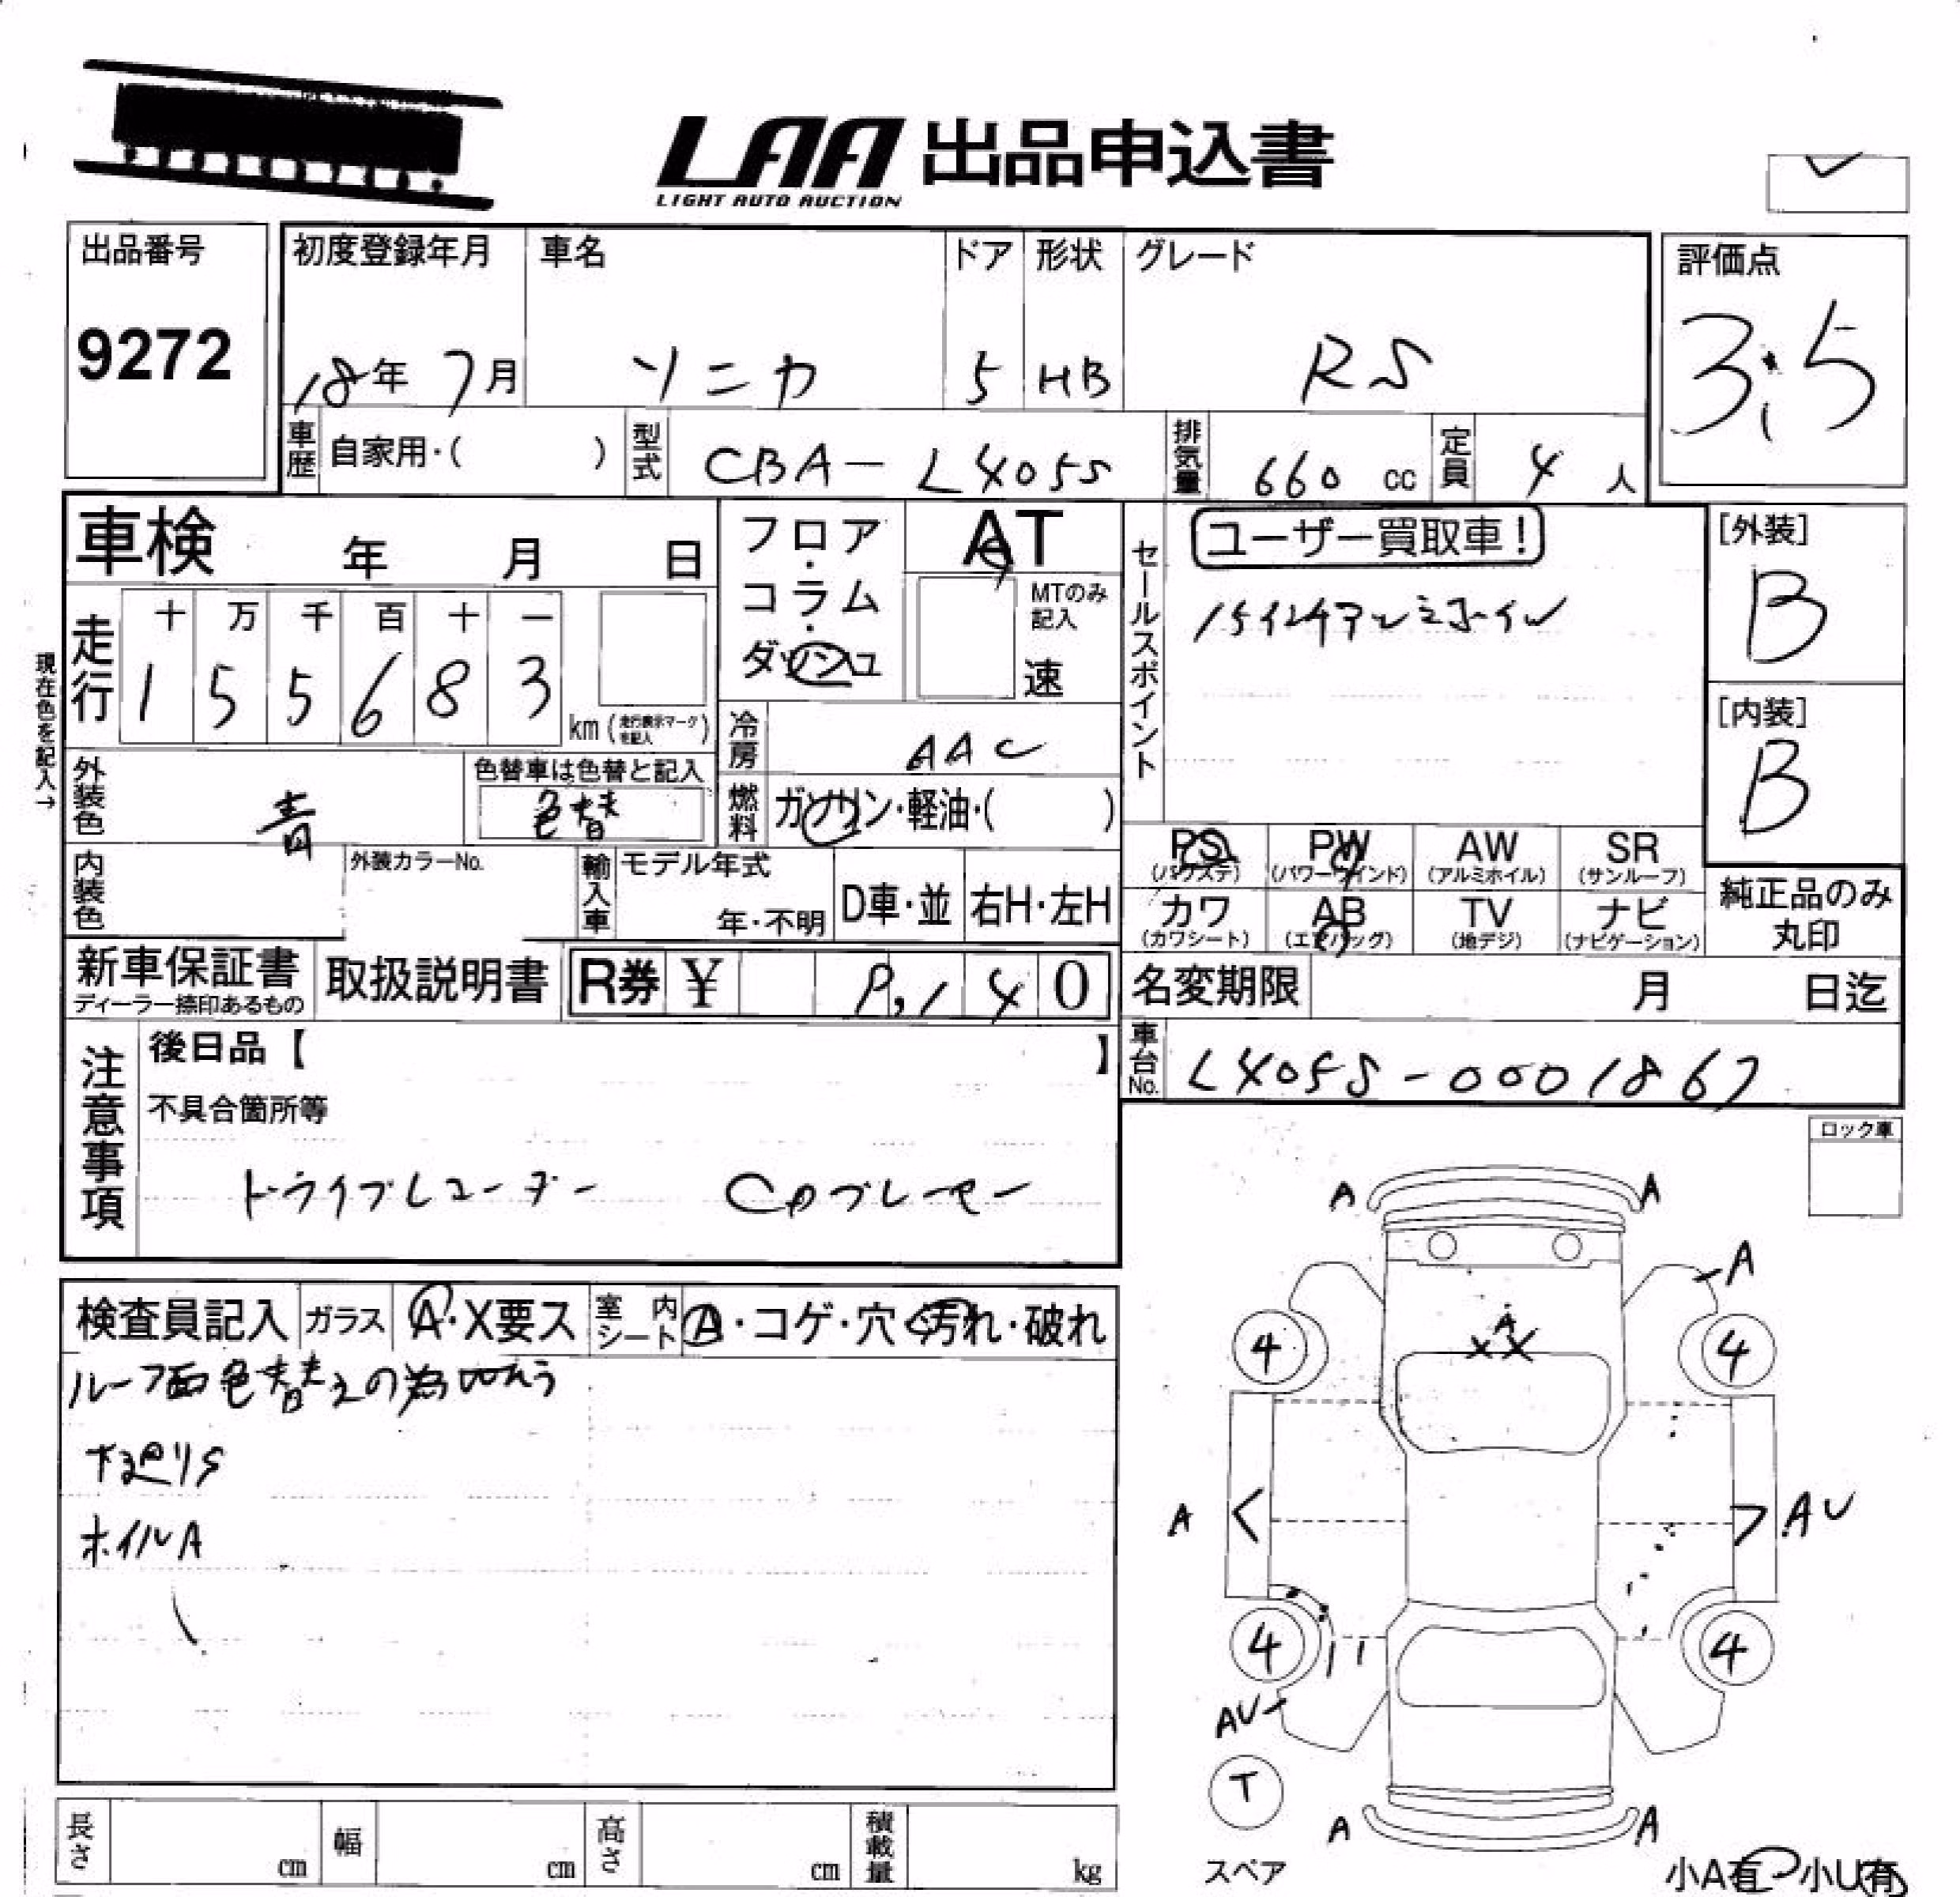 LAA 出品申込書
LIGHT AUTO AUCTION
出品番号
9272
初度登録年月
18年 7月
車名
ソニカ
ドア
5
形状
HB
グレード
RS
評価点
3.5
車歴 自家用・( )
型式 CBA-L405S
排気量 660 cc
定員 4 人
車検 年 月 日
フロア・コラム・ダッシュ
AT
MTのみ記入
速
セールスポイント
ユーザー買取車!
15インチアルミホイル
[外装]
B
[内装]
B
現在色を記入→
走行
十 万 千 百 十 一
1 5 5 6 8 3
km (走行表示マークを記入)
冷房 AAC
燃料 ガソリン・軽油・( )
外装色 青
色替車は色替と記入
色替
内装色
外装カラーNo.
輸入車
モデル年式
年・不明
D車・並
右H・左H
PS (パワステ)
PW (パワーウインド)
AW (アルミホイル)
SR (サンルーフ)
カワ (カワシート)
AB (エアバッグ)
TV (地デジ)
ナビ (ナビゲーション)
純正品のみ
丸印
新車保証書
ディーラー捺印あるもの
取扱説明書
R券 ¥ 140
名変期限 月 日迄
車台No. L405S-0001867
注意事項
後日品【 】
不具合箇所等
ドライブレコーダー CDプレーヤー
ロック車
検査員記入
ガラス A・X要ス
室内シート A・コゲ・穴・汚れ・破れ
ルーフ面色替えの為
下廻りS
ホイルA
A A
A
A
XX
4 4
A < > AU
4 4
AU
T
スペア
A A
小A有 小U有
長さ cm
幅 cm
高さ cm
積載量 kg